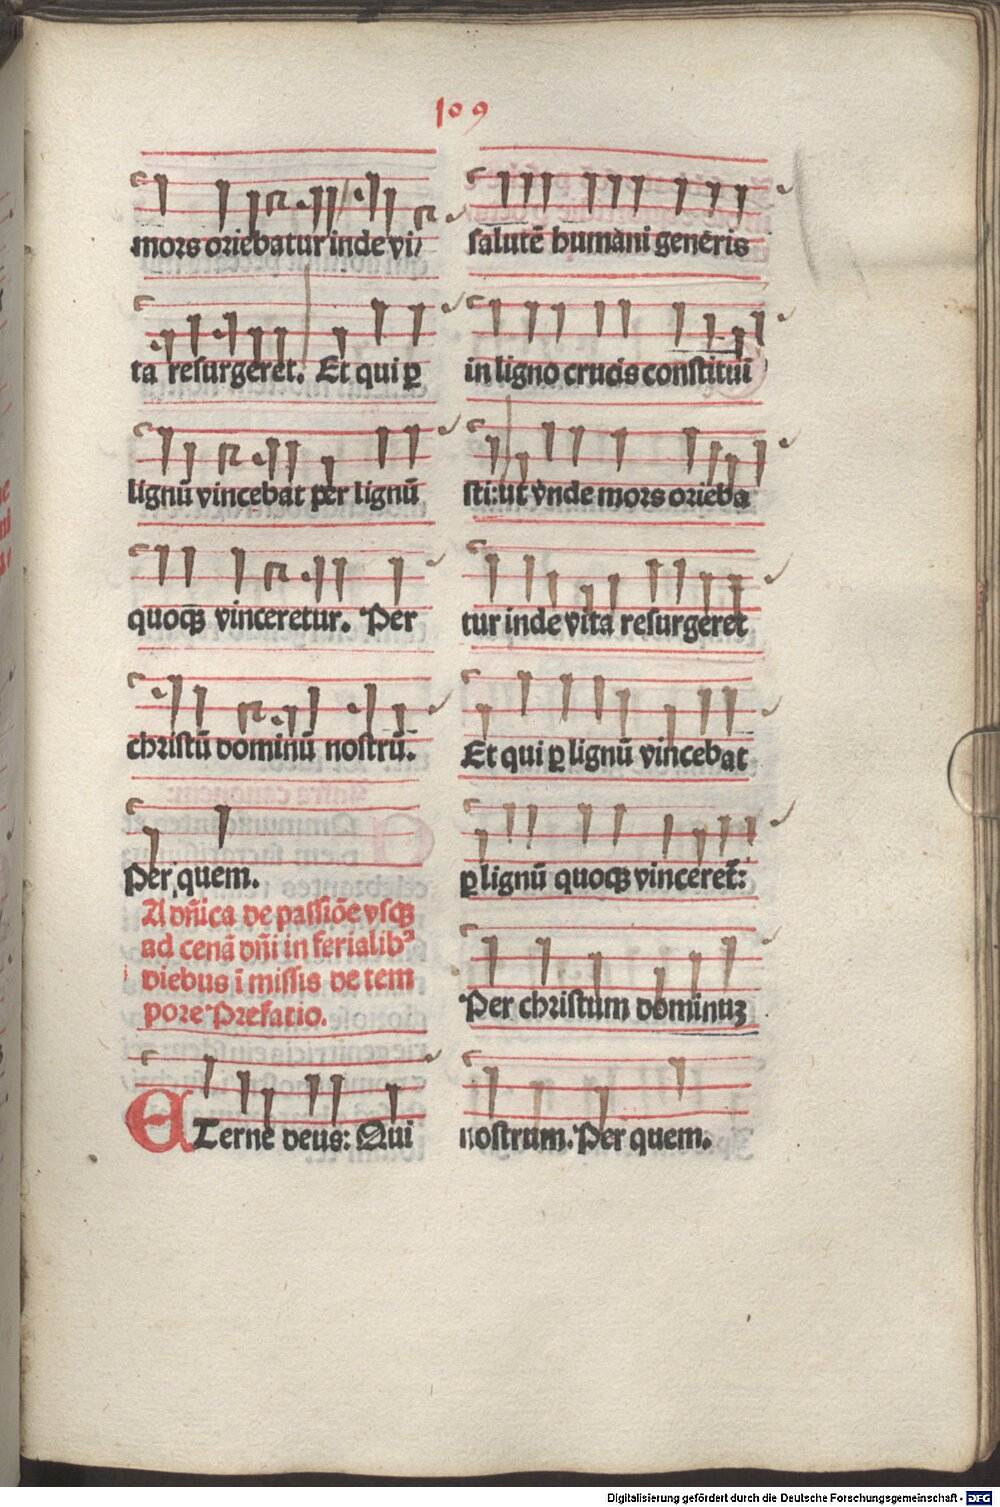 109
mors oriebatur inde vi/
ta resurgeret. Et qui ꝑ
lignū vincebat per lignū
quoqꝫ vinceretur. Per
christū dominū nostrū.
Per quem.
A dn̄ica de passiōe vsqꝫ
ad cenā dn̄i in ferialibꝰ
diebus ī missis de tem
pore Prefatio.
ETerne deus: Qui
salutē humani generis
in ligno crucis constitui
sti: ut vnde mors orieba
tur inde vita resurgeret
Et qui ꝑ lignū vincebat
ꝑ lignū quoqꝫ vinceret̄:
Per christum dominuꝫ
nostrum. Per quem.
Digitalisierung gefördert durch die Deutsche Forschungsgemeinschaft - DFG